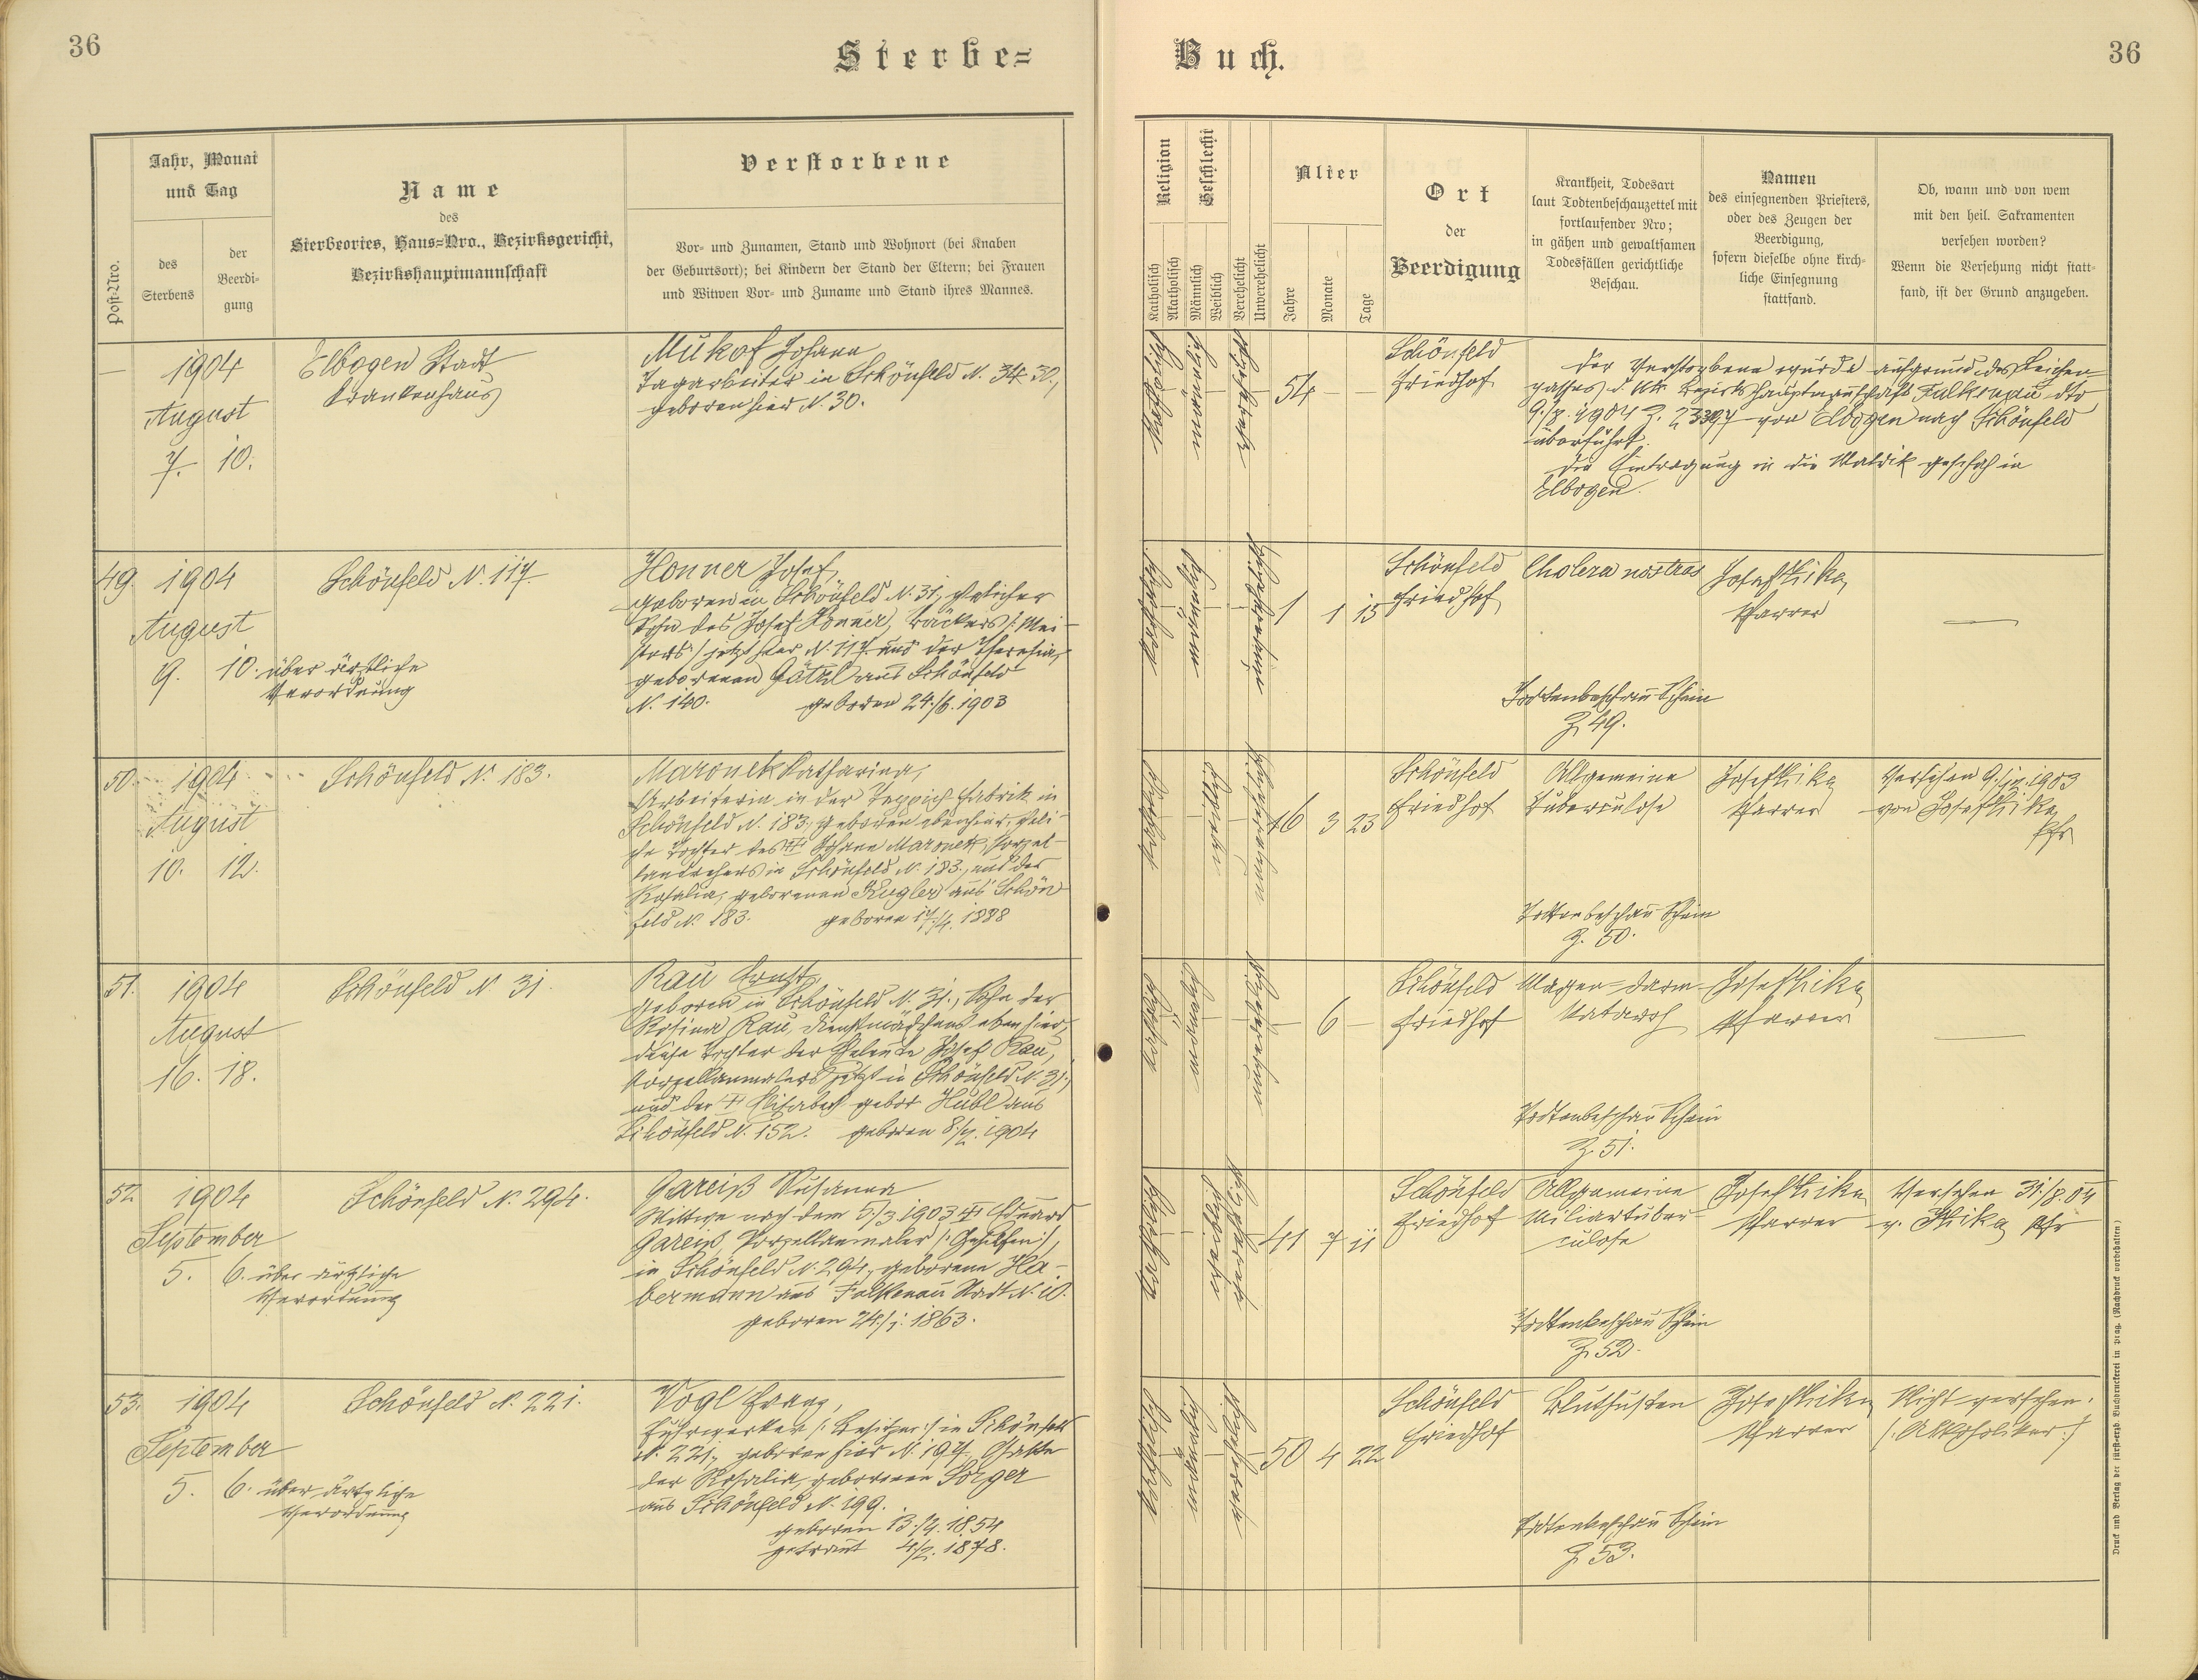 36
Sterbe=
Buch.
36
Post-Nro.
Jahr, Monat
und Tag
des
Sterbens
der
Beerdi-
gung
Name
des
Sterbeortes, Haus=Nro., Bezirksgericht,
Bezirkshauptmannschaft
Verstorbene
Vor- und Zunamen, Stand und Wohnort (bei Knaben
der Geburtsort); bei Kindern der Stand der Eltern; bei Frauen
und Witwen Vor- und Zuname und Stand ihres Mannes.
Religion
Katholisch
Akatholisch
Geschlecht
Männlich
Weiblich
Verehelicht
Unverehelicht
Alter
Jahre
Monate
Tage
Ort
der
Beerdigung
Krankheit, Todesart
laut Todtenbeschauzettel mit
fortlaufender Nro;
in gähen und gewaltsamen
Todesfällen gerichtliche
Beschau.
Namen
des einsegnenden Priesters,
oder des Zeugen der
Beerdigung,
sofern dieselbe ohne kirch-
liche Einsegnung
stattfand.
Ob, wann und von wem
mit den heil. Sakramenten
versehen worden?
Wenn die Versehung nicht statt-
fand, ist der Grund anzugeben.
—
1904
August
7. 10.
Elbogen Stadt
Krankenhaus
Johann
Tagarbeiter in Schönfeld N.
geboren hier N. 30.
katholisch
männlich
verehelicht
54 — —
Schönfeld
Friedhof
Der Verstorbene wurde aufgrund des Leichen-
passes d. kk. Bezirkshauptmannschaft Falkenau dto
von Elbogen nach Schönfeld
überführt.
Die Eintragung in die Matrik geschah in
Elbogen.
49. 1904
August
9. 10. über ärztliche
Verordnung
Schönfeld N. 117
Honner Josef,
geboren in Schönfeld N. 31, ehelicher
Sohn des Josef Honner, Bäckers /: Mei-
sters / jetzt hier N. 117. und der Theresia,
geborenen Götzl aus Schönfeld
N. 140. geboren 24./6. 1903
katholisch
männlich
unverehelicht
1 1 15
Schönfeld
Friedhof
Cholera nostras
Todtenbeschau Schein
Z. 49.
Josef
Pfarrer
—
50. 1904
August
10. 12.
Schönfeld N. 183.
Maronek Katharina,
Arbeiterin in der Teppich Fabrik in
Schönfeld N. 183., geboren ebenhier, eheli-
che Tochter des Johann Maronek, Porzel-
landrehers in Schönfeld N. 183., und der
Rosalia, geborenen Kugler aus Schön
feld N. 183. geboren 17./4. 1888
katholisch
weiblich
unverehelicht
16 3 23
Schönfeld
Friedhof
Allgemeine
Tuberculose
Todtenbeschau Schein
Z. 50.
Josef
Pfarrer
Versehen 1903
von Josef
Pfr
51. 1904
August
16. 18.
Schönfeld N. 31.
Rau Ernst,
geboren in Schönfeld N. 31., Sohn der
Rosina Rau, Dienstmädchens ebenhier,
diese Tochter der Eheleute Josef Rau,
Porzellanmalers jetzt in Schönfeld N. 31.,
und der Elisabeth gebor Hübl aus
Schönfeld N. 152. geboren 8./2. 1904
katholisch
männlich
unverehelicht
— 6 —
Schönfeld
Friedhof
Magen=darm-
Katarrh
Todtenbeschau Schein
Z. 51.
Josef
Pfarrer
—
52. 1904
September
5. 6. über ärztliche
Verordnung
Schönfeld N. 294.
Gareiß Susanna
Wittwe nach dem 5./3 1903 Eduard
Gareiß, Porzellanmaler /: Gehilfen :/,
in Schönfeld N. 294., geborene Ha-
bermann aus Falkenau Stadt N. 10.
geboren 24./1. 1863.
katholisch
weiblich
verehelicht
41 7 11
Schönfeld
Friedhof
Allgemeine
Miliartuber-
culose
Todtenbeschau Schein
Z. 52.
Josef
Pfarrer
Versehen 31./8. 04
v. Pfr
53. 1904
September
5. 6. über ärztliche
Verordnung
Schönfeld N. 221.
Vogl Franz,
Fuhrwerker /: Besitzer :/ in Schönfeld
N. 221., geboren hier N. 197, Gatte
der Rosalia, geborenen Sorger
aus Schönfeld N. 199.
geboren 1854
getraut 1878.
katholisch
männlich
verehelicht
50 4 22
Schönfeld
Friedhof
Bluthusten
Todtenbeschau Schein
Z. 53.
Josef
Pfarrer
Nicht versehen.
/: Alkoholiker :/
Druck und Verlag der fürst-erzb. Buchdruckerei in Prag. (Nachdruck vorbehalten.)